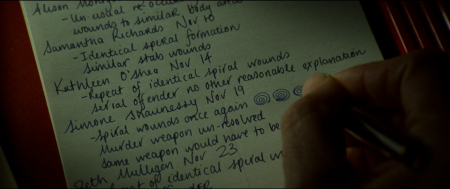 Alison
- Un usual re occu
wounds to similar body
Samantha Richards Nov 10
- Identical speral formation
similar stab wounds
Kathleen O'Shea Nov 14
- Repeat of identical spiral wounds
serial offender no other reasonable explanation
Simone Shaunessy Nov 19
- Spiral wounds once again
Murder weapon un-resolved
same weapon would have to be
Beth Mulligan Nov 23
of identical spiral w